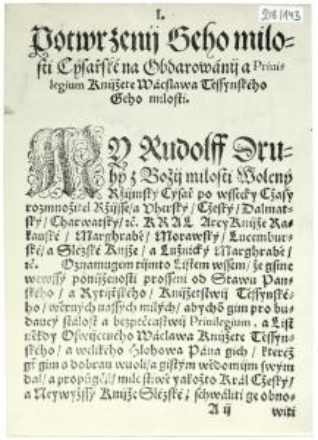 I.
218/143
Potwrzenij Geho milo-
sti Cysařské na Obdarowánij a Priui-
legium Knijžete Wácslawa Tessynského
Geho milosti.
MY Rudolff Dru-
hý z Božij milosti Wolený
Ržijmský Cysař po wssecky Cžasy
rozmnožitel Ržijsse/ a Vherský/ Cžeský/ Dalmat-
ský/ Charwatský/ ꝛč. KRAL Arcy Knijže Ra-
kauské/ Marghrabě/ Morawský/ Lucembur-
ské/ a Slézské Knijže/ a Lužnický Marghrabě/
ꝛč. Oznamugem tijmto Listem wssem/ že gsme
wewssý poníženosti prosseni od Stawu Pan-
ského/ a Rytijřského/ Knijžetstwij Tessynské-
ho/ wěrných nassých milých/ abychō gim pro bu-
daucý stálost a bezpečenstwij Priuilegium, a List
někdy Oswijceného Wácslawa Knijžete Tessyn-
ského/ a welikého Hlohowa Pána gich/ kterež
gest gim s dobrau wuoli/ a gistým wědomijm swým
dal/ a propůgčil/ milostiwě yakožto Král Cžeský/
a Neywyžssý Knijže Slézské/ schwáliti ge obno-
A ij
witi